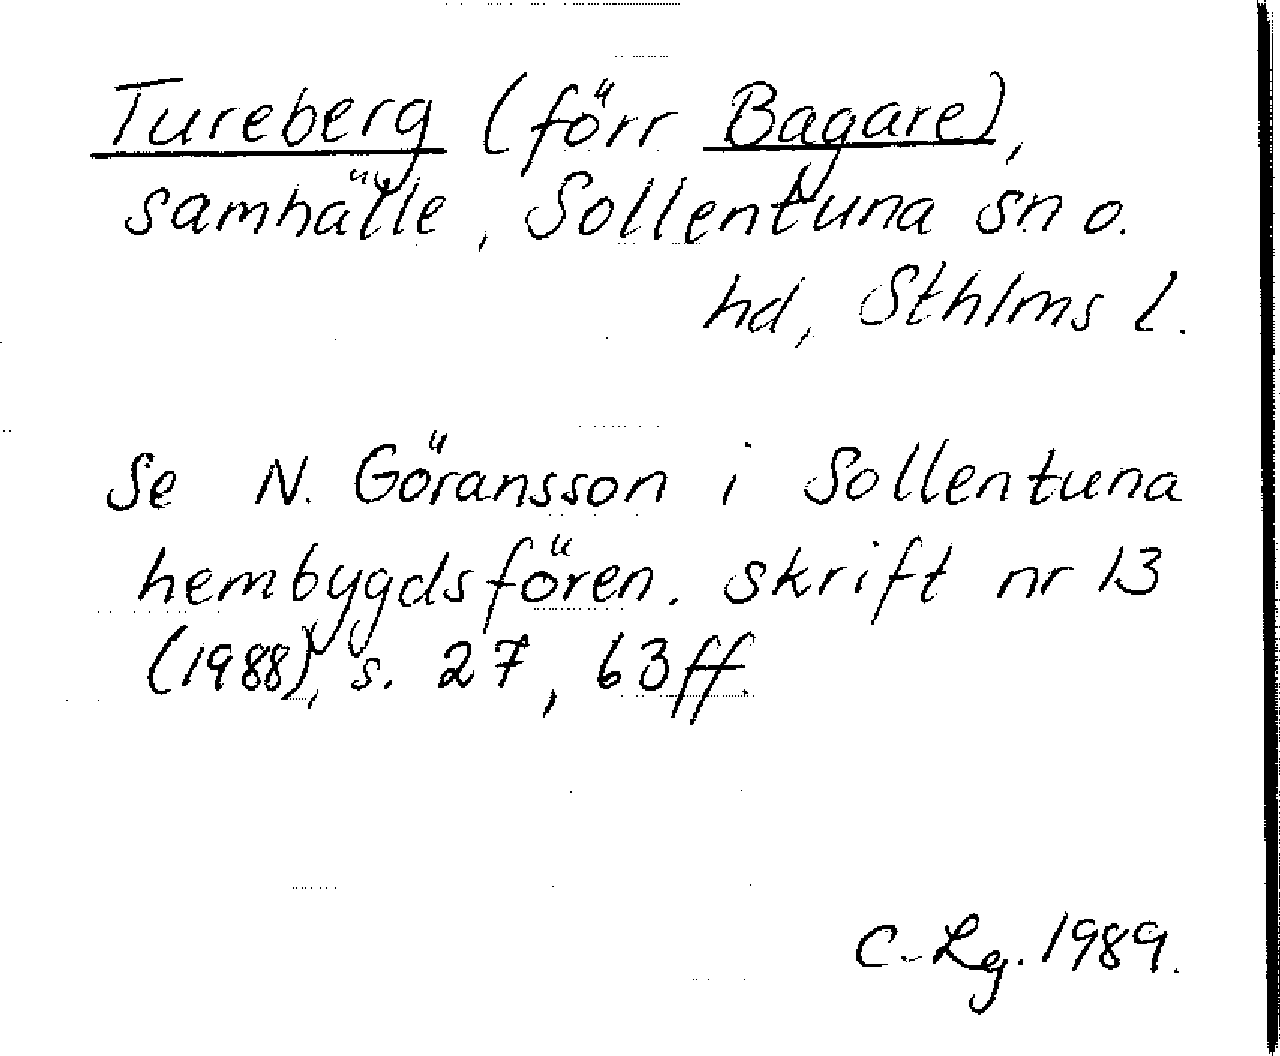 Tureberg (förr Bagare),
samhälle, Sollentuna sn o.
hd, Sthlms l.
Se N. Göransson i Sollentuna
hembygdsfören. skrift nr 13
(1988), s. 27, 63ff.
C-Lg. 1989.